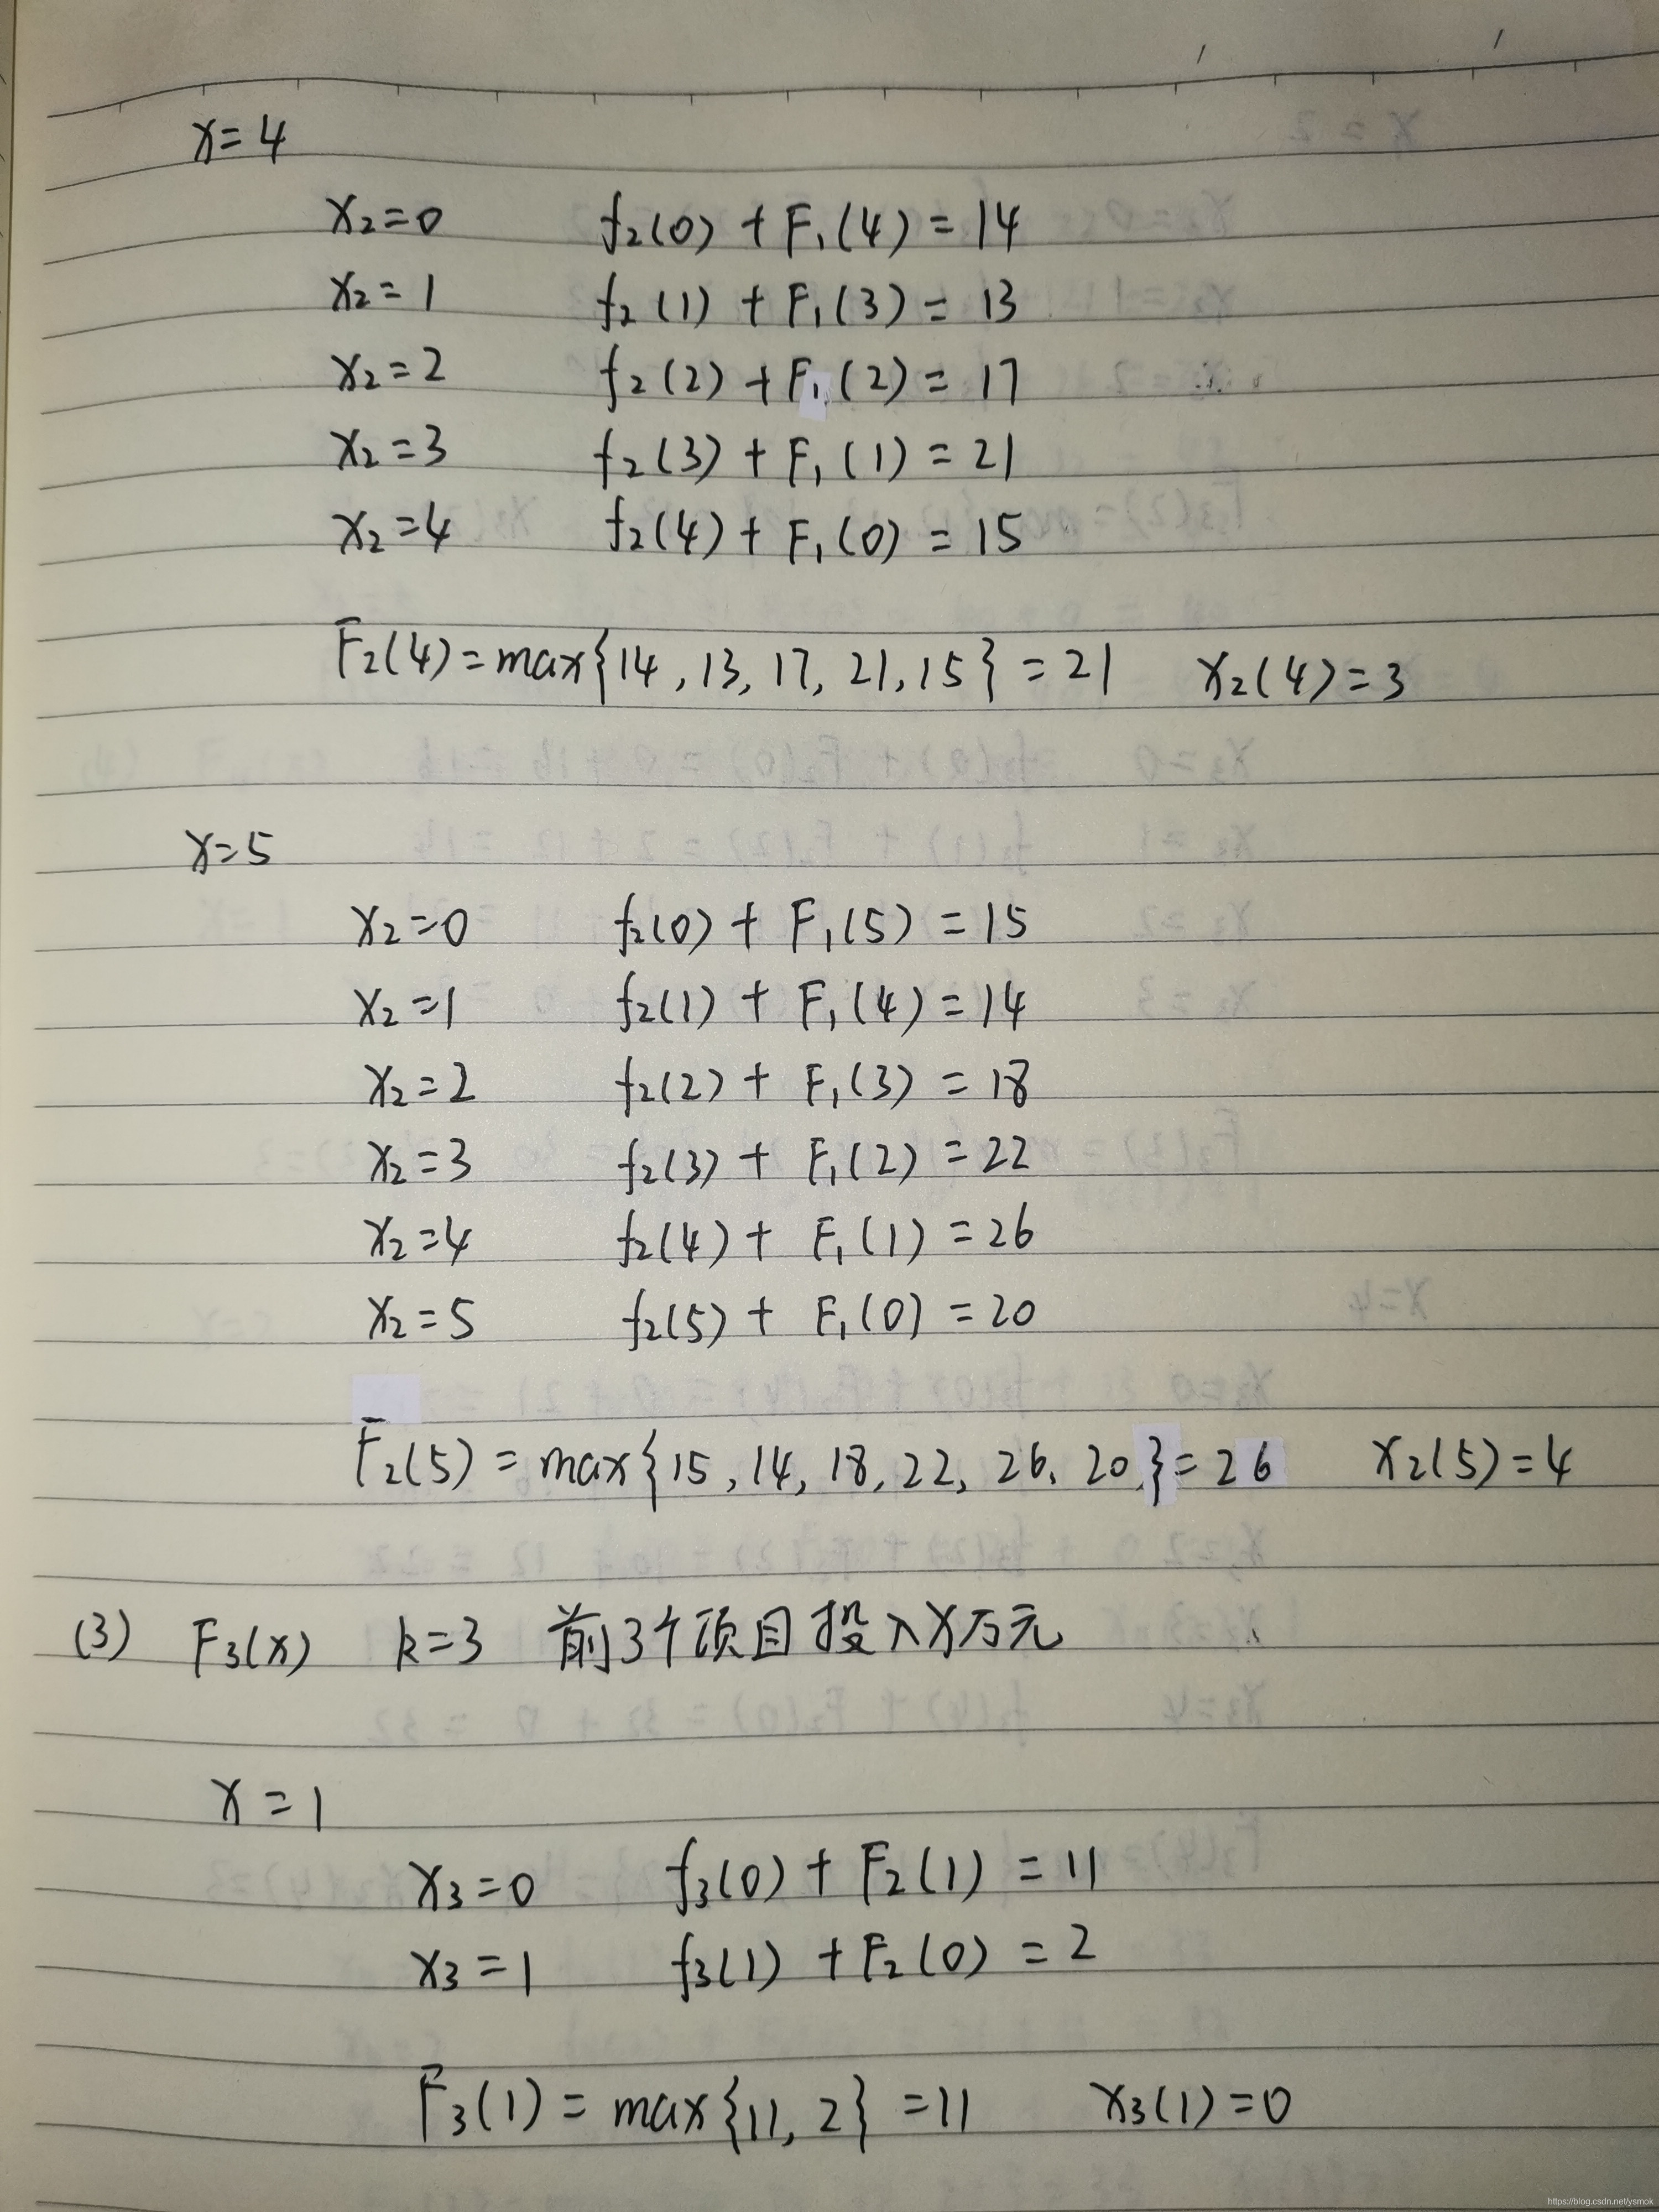 x=4
x₂=0 f₂(0) + F₁(4) = 14
x₂=1 f₂(1) + F₁(3) = 13
x₂=2 f₂(2) + F₁(2) = 17
x₂=3 f₂(3) + F₁(1) = 21
x₂=4 f₂(4) + F₁(0) = 15
F₂(4)=max{14,13,17,21,15}=21 x₂(4)=3
x=5
x₂=0 f₂(0) + F₁(5) = 15
x₂=1 f₂(1) + F₁(4) = 14
x₂=2 f₂(2) + F₁(3) = 18
x₂=3 f₂(3) + F₁(2) = 22
x₂=4 f₂(4) + F₁(1) = 26
x₂=5 f₂(5) + F₁(0) = 20
F₂(5) = max{15,14,18,22,26,20,}=26 x₂(5)=4
(3) F₃(x) k=3 前3个项目投入X万元
x=1
x₃=0 f₃(0) + F₂(1) = 11
x₃=1 f₃(1) + F₂(0) = 2
F₃(1) = max{11,2} =11 x₃(1)=0
https://blog.csdn.net/ysmok